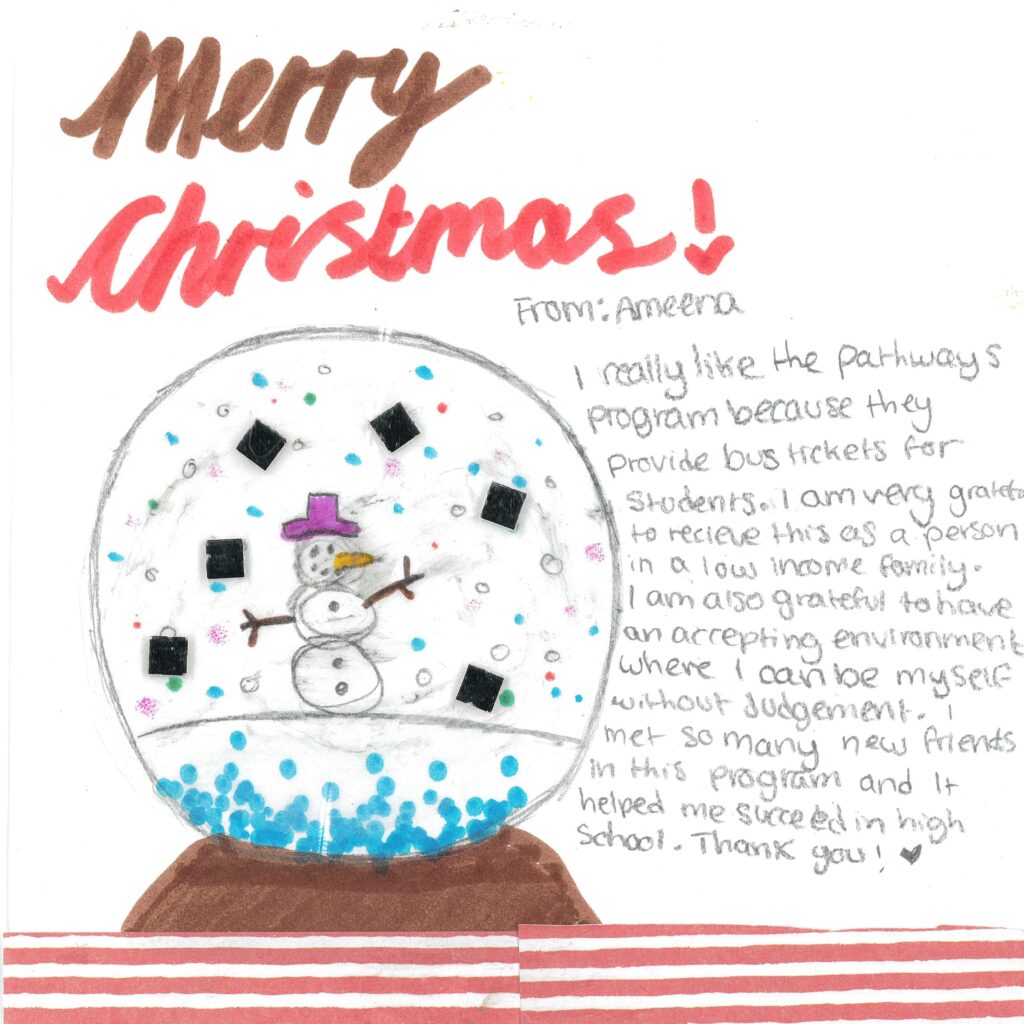 Merry
Christmas!
From: Ameena
I really like the pathways
program because they
provide bus tickets for
students. I am very grateful
to recieve this as a person
in a low income family.
I am also grateful to have
an accepting environment
where I can be myself
without Judgement. I
met so many new friends
in this program and It
helped me succeed in high
school. Thank you! ♥